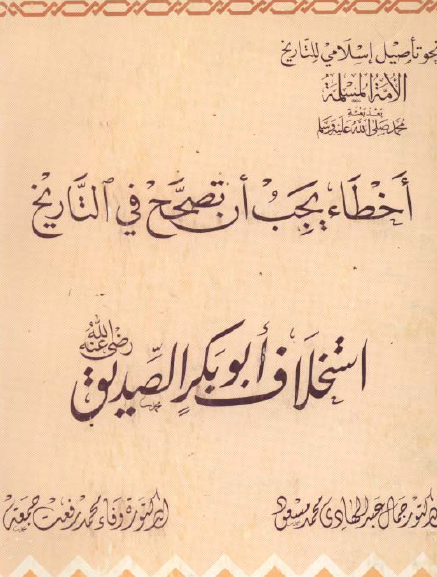 نحو تأصيل إسلامي للتاريخ
الأمة المسلمة
بعد بعثة
محمد صلى الله عليه وسلم
أخطاء يجب أن تصحَّح في التاريخ
استخلاف أبو بكر الصّديق رضي الله عنه
الدكتور جمال عبد الهادي محمد مسعود
الدكتورة وفاء محمد رفعت جمعة